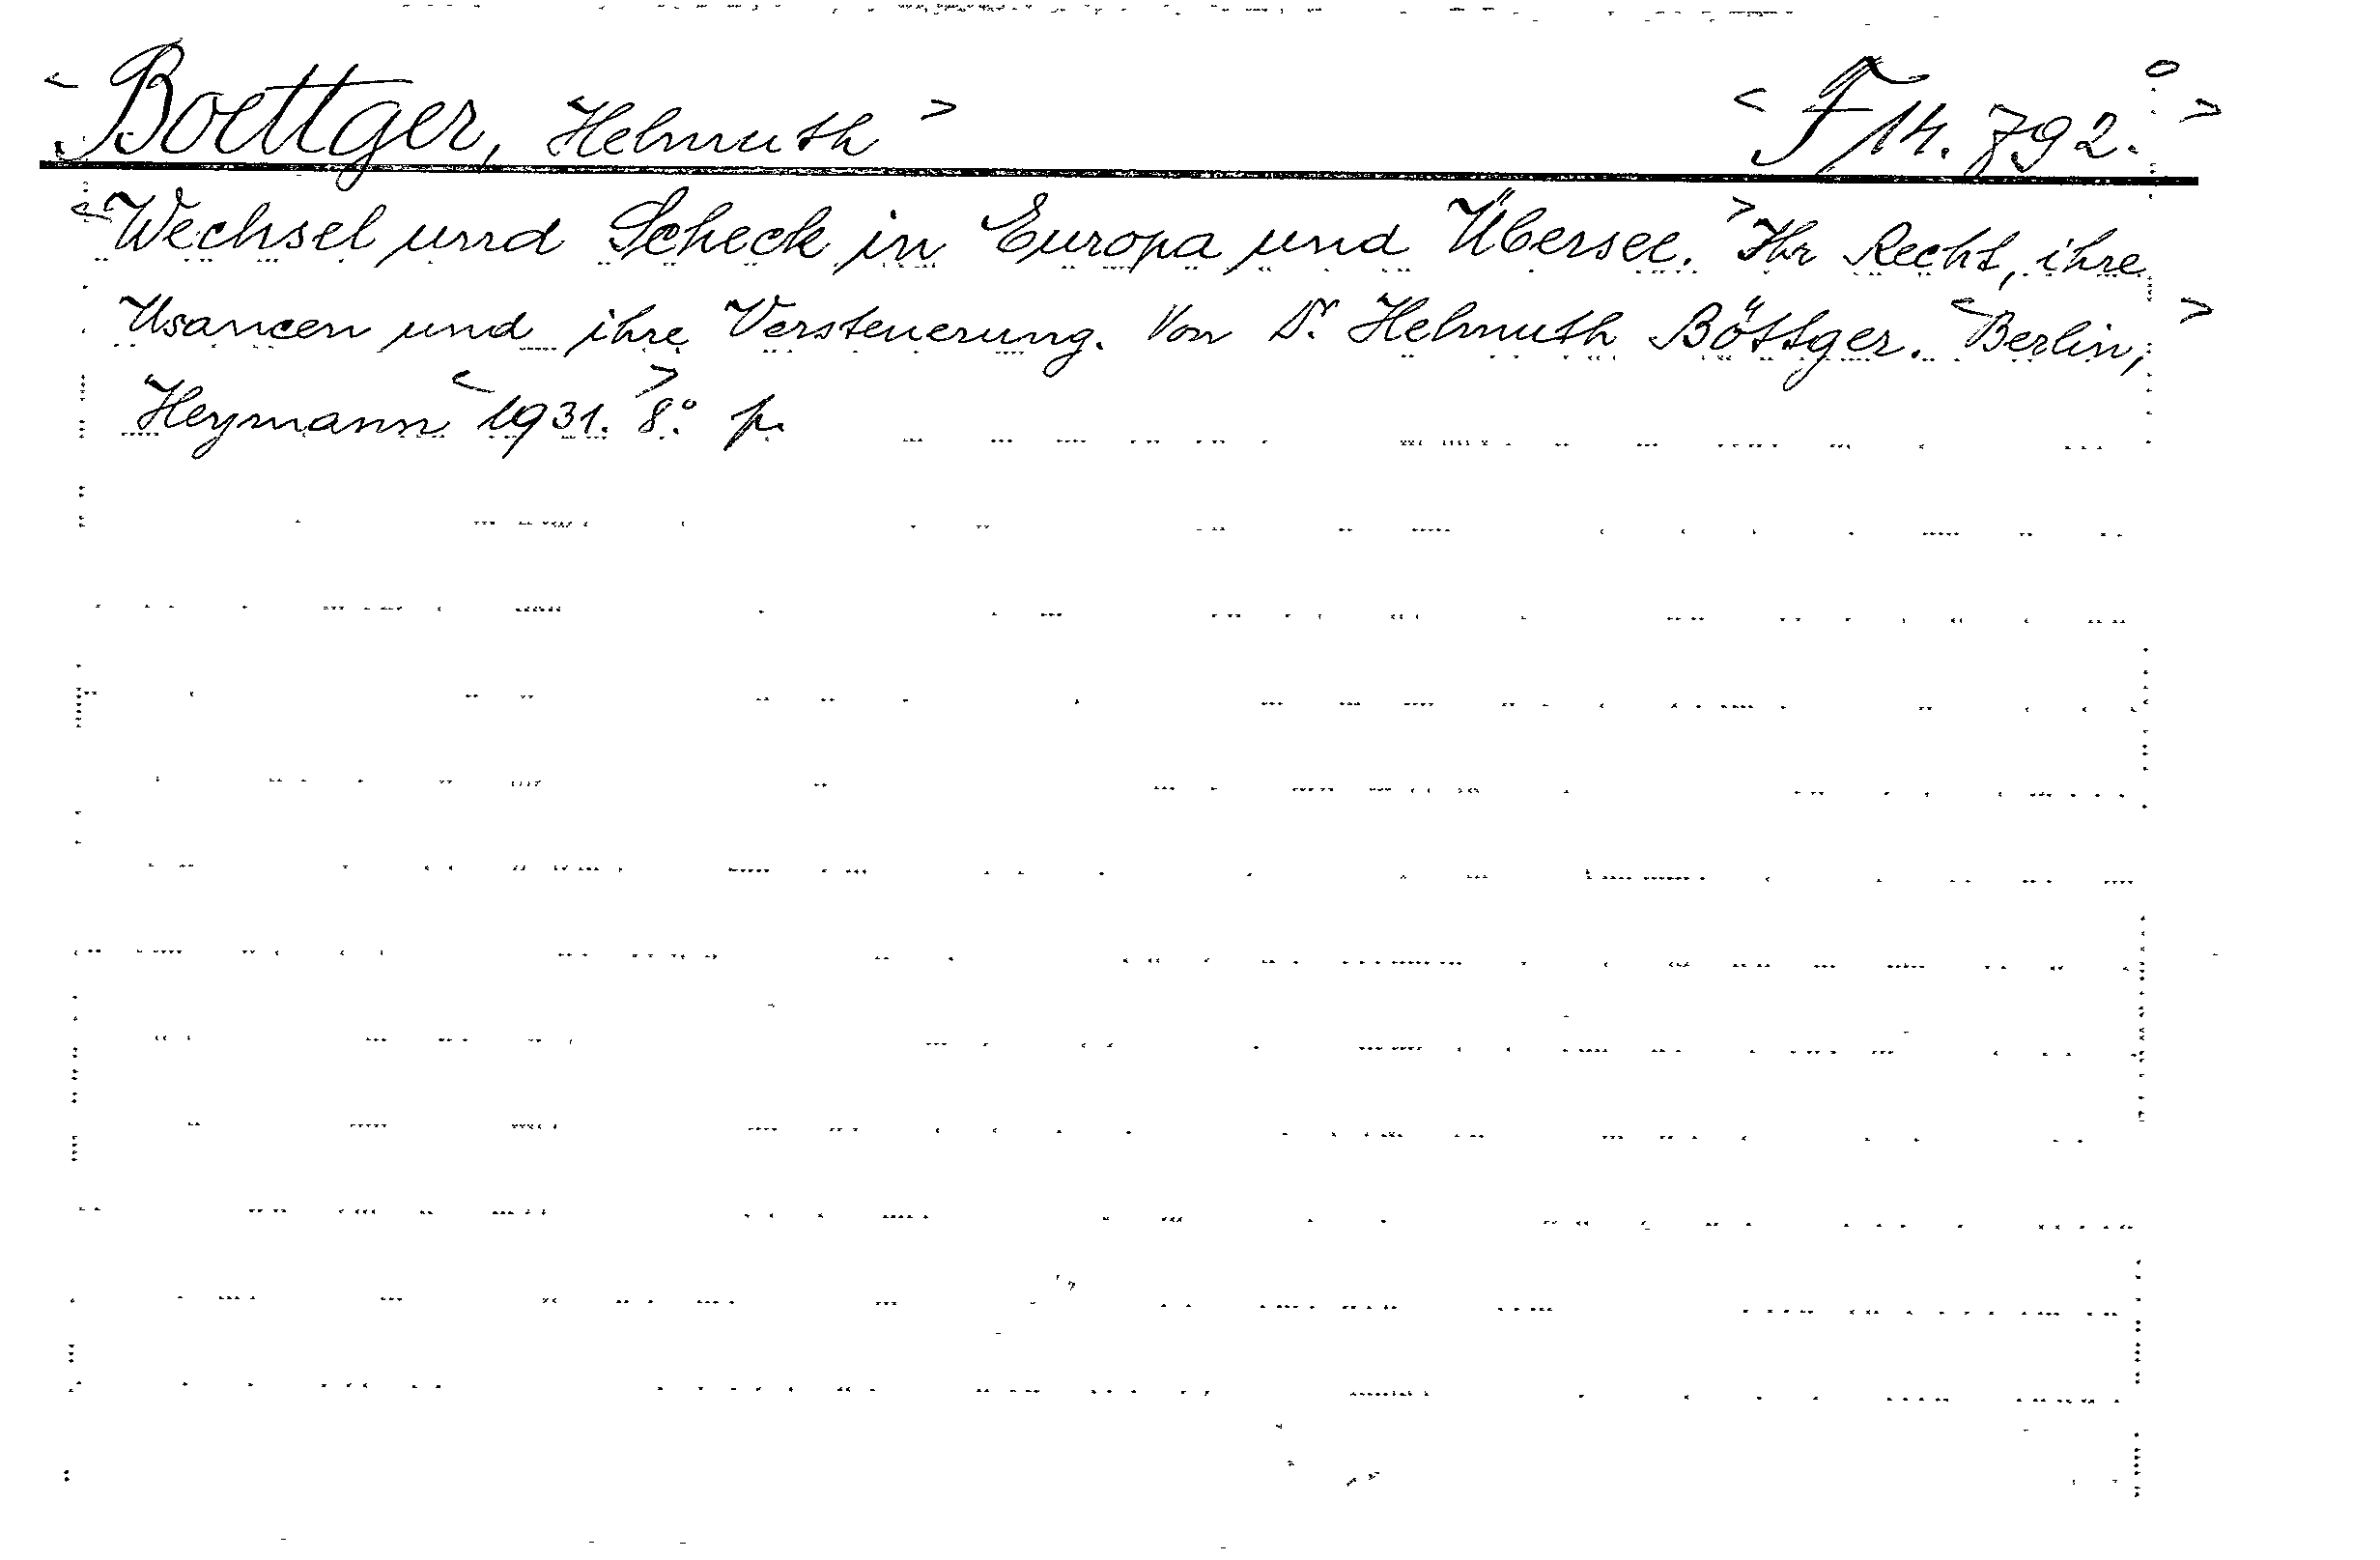 <Boettger, Helmuth> <F 14.792.>
<Wechsel und Scheck in Europa und Übersee.> Ihr Recht, ihre
Usancen und ihre Versteuerung. Von Dr. Helmuth Böttger. <Berlin,>
Heymann <1931.> 8°. p.